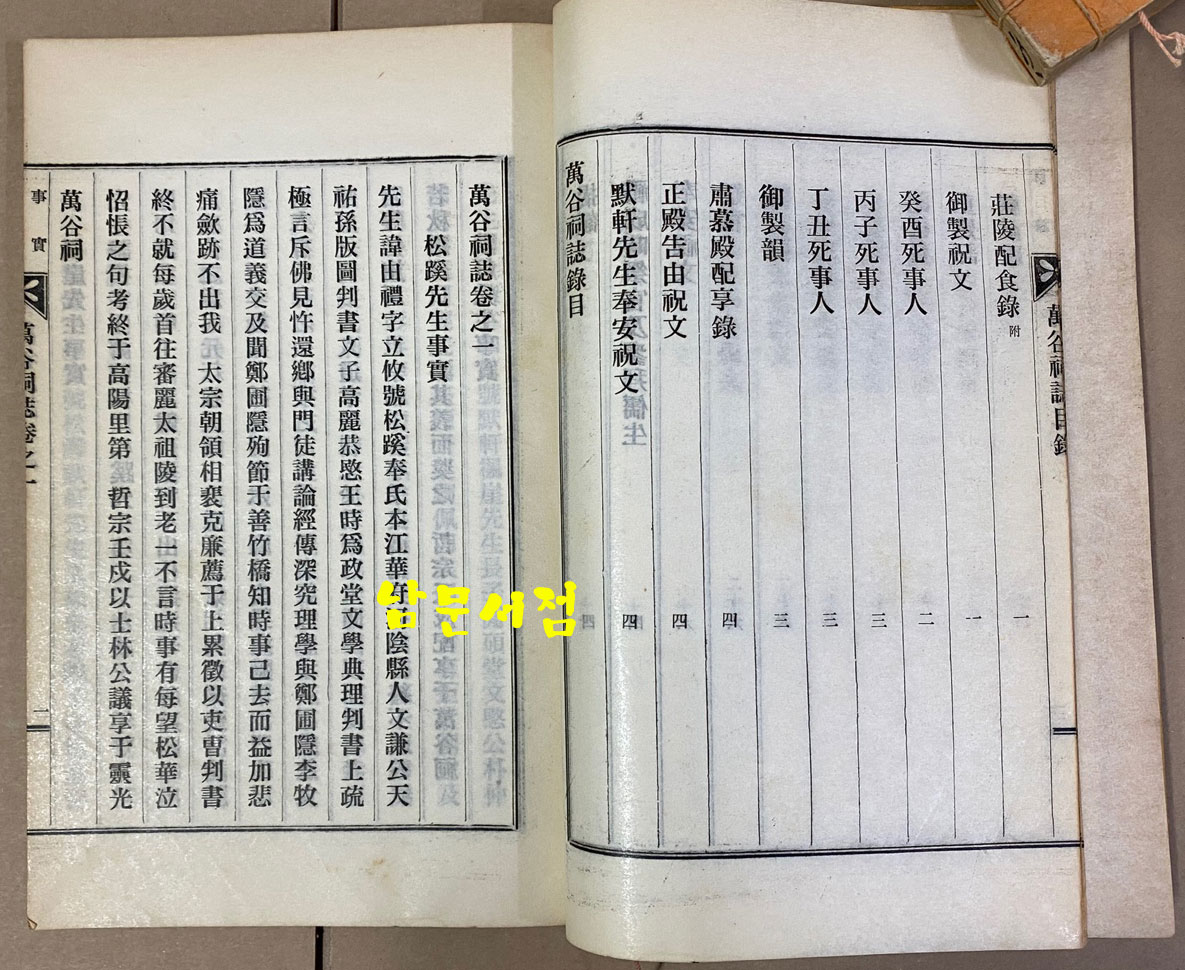 莊陵配食錄 附 一
御製祝文 一
癸酉死事人 二
丙子死事人 三
丁丑死事人 三
御製韻 三
肅慕殿配享錄 四
正殿告由祝文 四
默軒先生奉安祝文 四
萬谷祠誌錄目
萬谷祠誌目錄
萬谷祠誌卷之一
松蹊先生事實
先生諱由禮字立攸號松蹊奉氏本江華府 陰縣人文謙公天
祐孫版圖判書文子高麗恭愍王時爲政堂文學典理判書上疏
極言斥佛見忤還鄕與門徒講論經傳深究理學與鄭圃隱李牧
隱爲道義交及聞鄭圃隱殉節于善竹橋知時事己去而益加悲
痛斂跡不出我 太宗朝領相裵克廉薦于上累徵以吏曹判書
終不就每歲首往審麗太祖陵到老一不言時事有每望松華泣
怊悵之句考終于高陽里第 哲宗壬戌以士林公議享于靈光
萬谷祠
事實
萬谷祠誌卷之一
二
남문서점